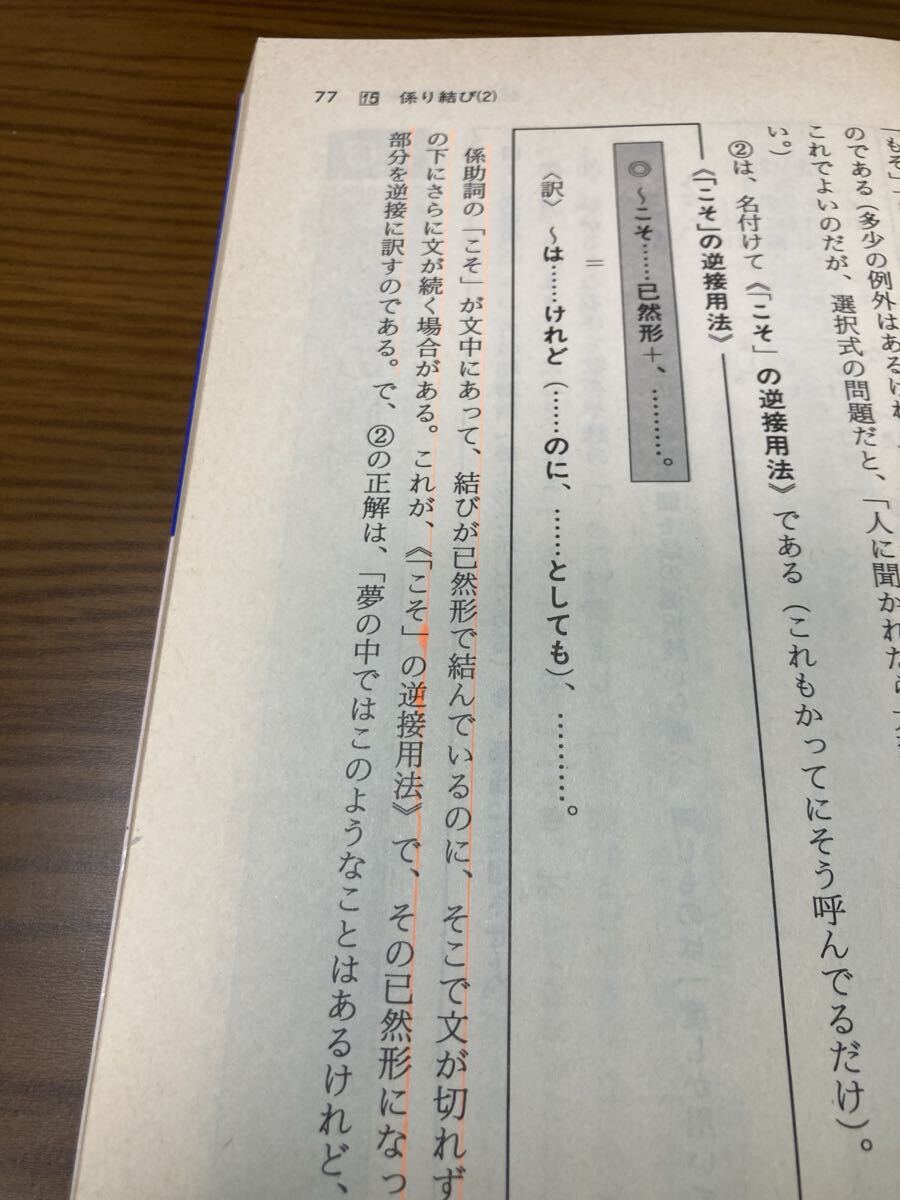 77 15 係り結び(2)
のである（多少の例外はあるけれ
これでよいのだが、選択式の問題だと、「人に聞かれたら
い。）
②は、名付けて《「こそ」の逆接用法》である（これもかってにそう呼んでるだけ）。
《「こそ」の逆接用法》
◎ 〜こそ……已然形＋、………。
＝
〈訳〉 〜は……けれど（……のに、……としても）、………。
係助詞の「こそ」が文中にあって、結びが已然形で結んでいるのに、そこで文が切れず
の下にさらに文が続く場合がある。これが、《「こそ」の逆接用法》で、その已然形になっ
部分を逆接に訳すのである。で、②の正解は、「夢の中ではこのようなことはあるけれど、